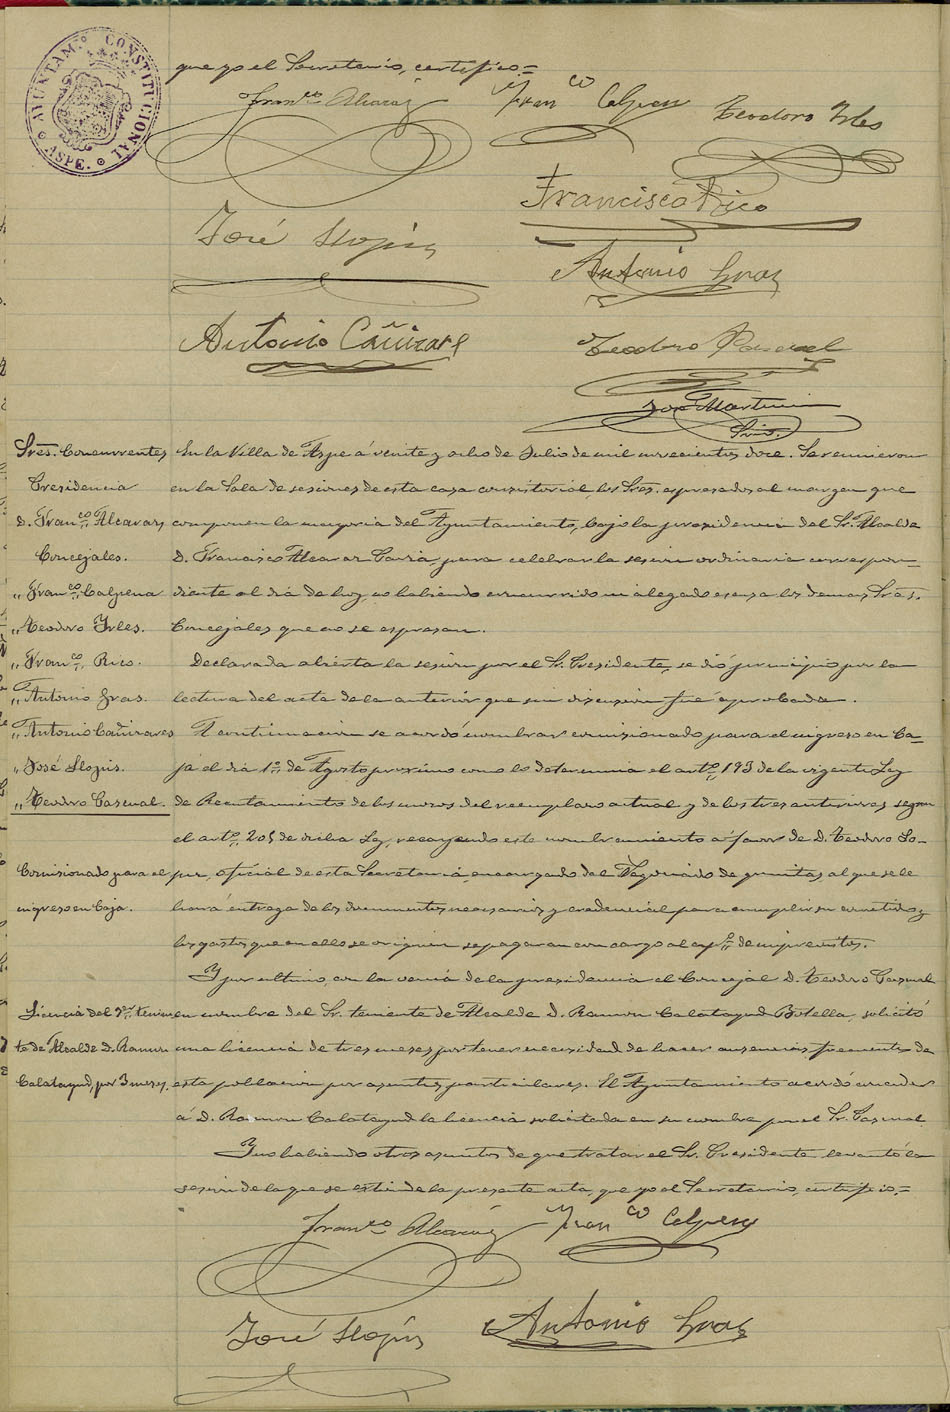 AYUNTAM.º CONSTITUCIONAL
ASPE.
que yo el Secretario, certifico=
Franco Alcaraz
Franco Calpena
Teodoro Yrles
Francisco Rico
José Llopis
Antonio Gras
Antonio Cañizares
Teodoro Pascual
José Martinez
Srio.
Sres. Concurrentes
Presidencia
D. Franco Alcaraz
Concejales.
" Franco Calpena
" Teodoro Yrles.
" Franco Rico.
" Antonio Gras.
" Antonio Cañizares
" José Llopis.
" Teodoro Pascual.
En la Villa de Aspe á veinte y ocho de Julio de mil novecientos doce. Se reunieron
en la Sala de sesiones de esta casa consistorial los Sres. expresados al margen que
componen la mayoria del Ayuntamiento, bajo la presidencia del Sr. Alcalde
D. Francisco Alcaraz para celebrar la sesion ordinaria correspon-
diente al dia de hoy, no habiendo concurrido ni alegado escusa los demas Sres.
Concejales que no se expresan.
Declarada abierta la sesion por el Sr. Presidente, se dió principio por la
lectura del acta de la anterior que sin discusion fué aprobada.
A continuacion se acordó nombrar comisionado para el ingreso en Ca-
ja el dia 1º de Agosto proximo como lo determina el artº 193 de la vigente Ley
de Reclutamiento de los mozos del reemplazo actual y de los tres anteriores, segun
el artº 205 de dicha Ley, recayendo este nombramiento á favor de D. Teodoro
Comisionado para el
ingreso en Caja.
oficial de esta Secretaria, encargado del Negociado de quintas, al que se le
hará entrega de los documentos necesarios y credencial para cumplir su cometido y
los gastos que en ello se originen se pagaran con cargo al capº de imprevistos.
Y por ultimo, con la venia de la presidencia el Concejal D. Teodoro Pascual
Licencia del tenien
te de Alcalde D. Ramon
Calatayud, por 3 meses.
en nombre del Sr. teniente de Alcalde D. Ramon Calatayud Botella, solicitó
una licencia de tres meses por tener necesidad de hacer ausencias frecuentes de
esta poblacion por asuntos particulares. El Ayuntamiento acordó conceder
á D. Ramon Calatayud la licencia solicitada en su nombre por el Sr. Pascual
Y no habiendo otros asuntos de que tratar el Sr. Presidente levantó la
sesion de la que se extiende la presente acta, que yo el Secretario, certifico.=
Franco Alcaraz
Franco Calpena
José Llopis
Antonio Gras